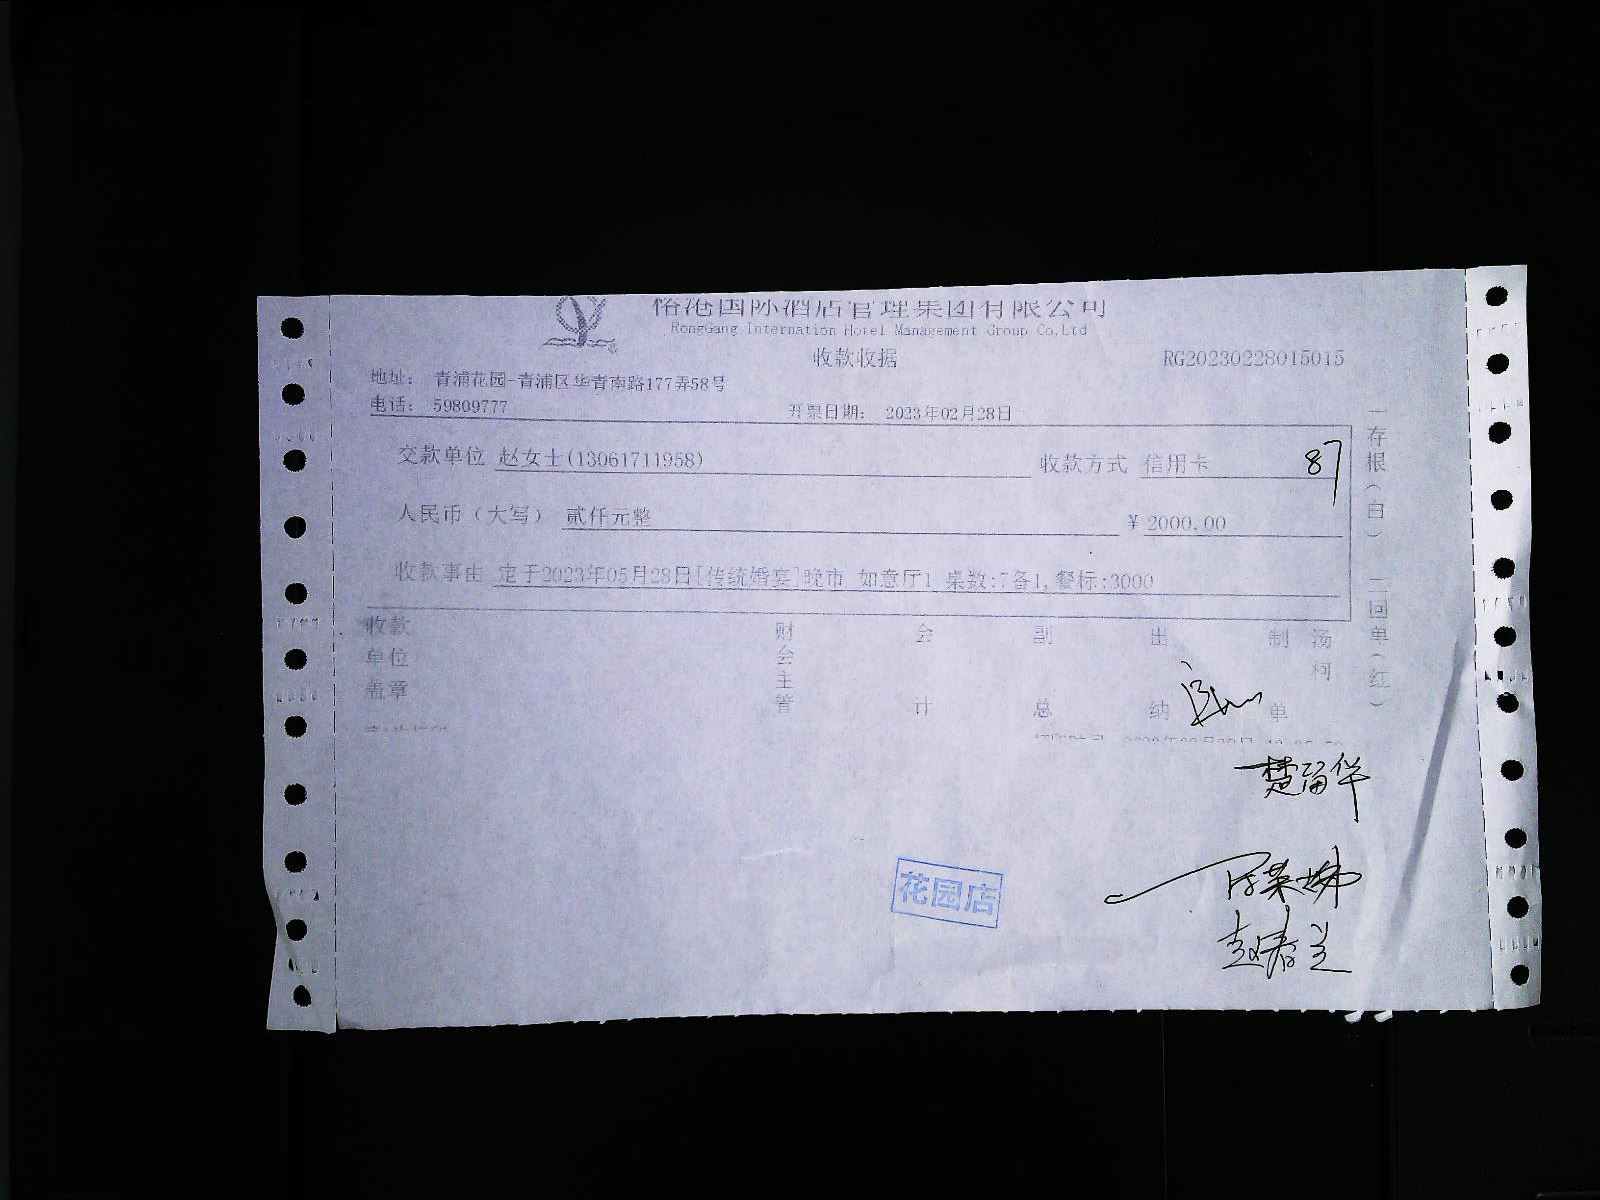 裕港国际酒店管理集团有限公司
RongGang Internation Hotel Management Group Co.Ltd
收款收据
RG20230228015015
地址： 青浦花园-青浦区华青南路177弄58号
电话： 59809777
开票日期： 2023年02月28日
交款单位 赵女士(13061711958)
收款方式 信用卡 87
人民币（大写） 贰仟元整
￥ 2000.00
收款事由 定于2023年05月28日[传统婚宴]晚市 如意厅1 桌数:7备1,餐标:3000
收款单位盖章
财会主管
会计
副总
出纳
制单
汤柯
一存根（白）二回单（红）
楚留华
花园店
赵春兰